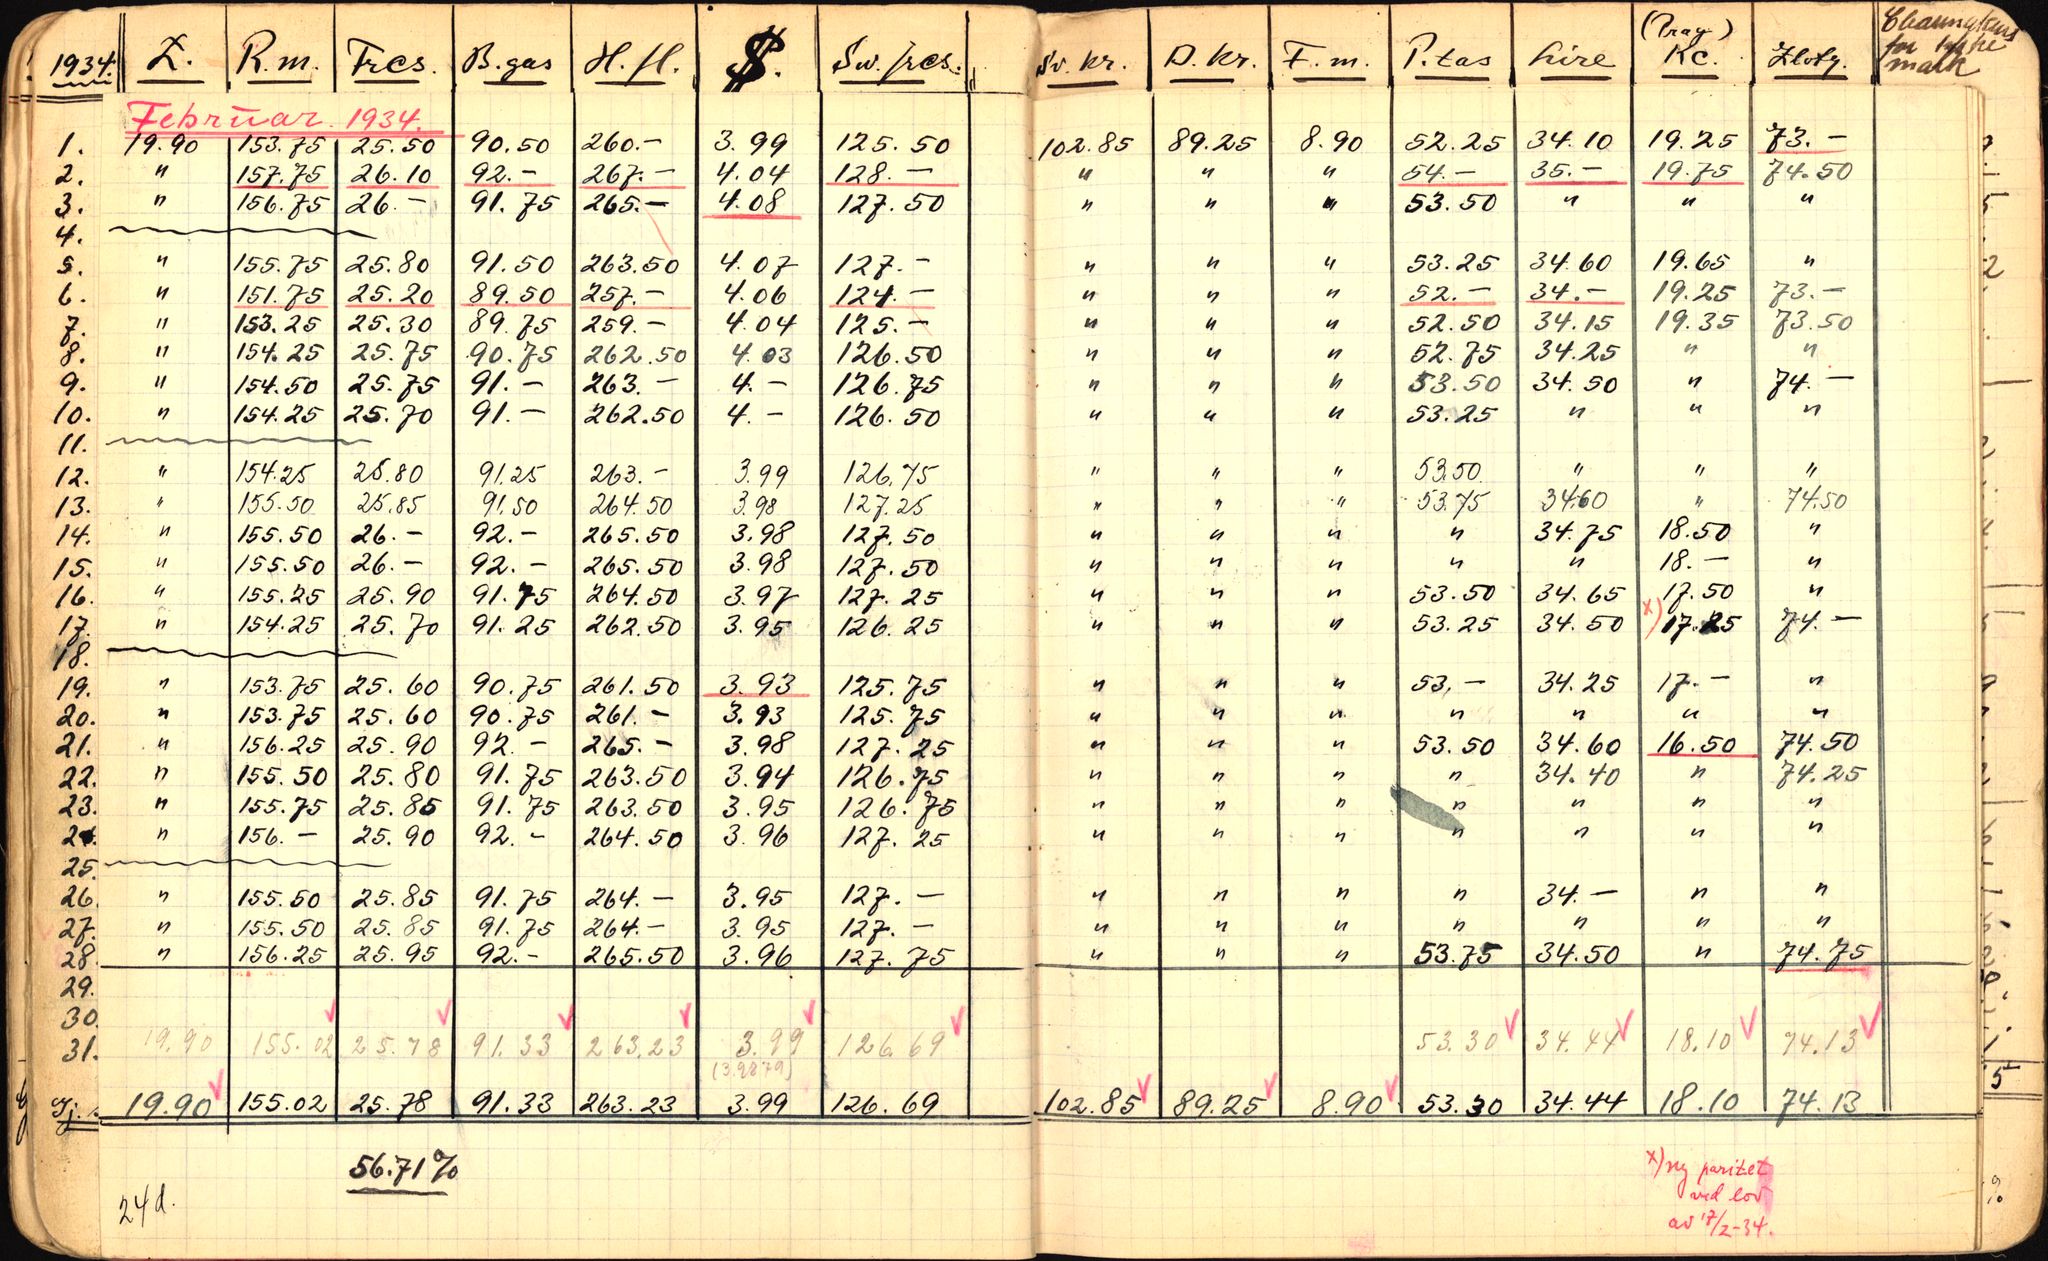 1934. £. R.m. Frcs. B.gas H.fl. $. Sw.frcs. Sv.kr. D.Kr. F.m. P.tas Lire (Prag) Kc. Zloty.
for
mark
Februar 1934.
1. 19.90 153.75 25.50 90.50 260.- 3.99 125.50 102.85 89.25 8.90 52.25 34.10 19.25 73.-
2. " 157.75 26.10 92.- 267.- 4.04 128.- " " " 54.- 35.- 19.75 74.50
3. " 156.75 26.- 91.75 265.- 4.08 127.50 " " " 53.50 " " "
4.
5. " 155.75 25.80 91.50 263.50 4.07 127.- " " " 53.25 34.60 19.65 "
6. " 151.75 25.20 89.50 257.- 4.06 124.- " " " 52.- 34.- 19.25 73.-
7. " 153.25 25.30 89.75 259.- 4.04 125.- " " " 52.50 34.15 19.35 73.50
8. " 154.25 25.75 90.75 262.50 4.03 126.50 " " " 52.75 34.25 " "
9. " 154.50 25.75 91.- 263.- 4.- 126.75 " " " 53.50 34.50 " 74.-
10. " 154.25 25.70 91.- 262.50 4.- 126.50 " " " 53.25 " " "
11.
12. " 154.25 25.80 91.25 263.- 3.99 126.75 " " " 53.50 " " "
13. " 155.50 25.85 91.50 264.50 3.98 127.25 " " " 53.75 34.60 " 74.50
14. " 155.50 26.- 92.- 265.50 3.98 127.50 " " " " 34.75 18.50 "
15. " 155.50 26.- 92.- 265.50 3.98 127.50 " " " " " 18.- "
16. " 155.25 25.90 91.75 264.50 3.97 127.25 " " " 53.50 34.65 17.50 "
17. " 154.25 25.70 91.25 262.50 3.95 126.25 " " " 53.25 34.50 x) 17.25 74.-
18.
19. " 153.75 25.60 90.75 261.50 3.93 125.75 " " " 53.- 34.25 17.- "
20. " 153.75 25.60 90.75 261.- 3.93 125.75 " " " " " " "
21. " 156.25 25.90 92.- 265.- 3.98 127.25 " " " 53.50 34.60 16.50 74.50
22. " 155.50 25.80 91.75 263.50 3.94 126.75 " " " " 34.40 " 74.25
23. " 155.75 25.85 91.75 263.50 3.95 126.75 " " " " " " "
24. " 156.- 25.90 92.- 264.50 3.96 127.25 " " " " " " "
25.
26. " 155.50 25.85 91.75 264.- 3.95 127.- " " " " 34.- " "
27. " 155.50 25.85 91.75 264.- 3.95 127.- " " " " " " "
28. " 156.25 25.95 92.- 265.50 3.96 127.75 " " " 53.75 34.50 " 74.75
29.
30.
31. 19.90 155.02 25.78 91.33 263.23 3.99 126.69 53.30 34.44 18.10 74.13
(3.9879)
gj. 19.90 155.02 25.78 91.33 263.23 3.99 126.69 102.85 89.25 8.90 53.30 34.44 18.10 74.13
56.71%
24d.
x) ny paritet
ved lov
av 17/2-34.